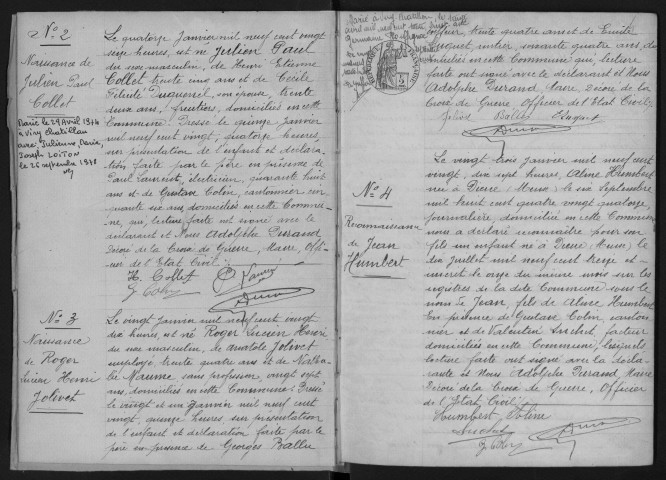 N° 2
Naissance de
Julien Paul
Collet
Marié le 29 Avril 1944
à Viry Chatillon
avec Julienne, Marie,
Joseph LOITON
le 26 septembre 1978
Le quatorze Janvier mil neuf cent vingt
seize heures, est né Julien Paul
du sexe masculin, de Henri Etienne
Collet trente cinq ans et de Cécile
son épouse, trente
deux ans, fruitiers, domiciliés en cette
Commune. Dressé le quinze Janvier
mil neuf cent vingt, quatorze heures,
sur présentation de l'enfant et déclara-
tion faite par le père en présence de
Paul Laurent, électricien, quarante huit
ans et de Gustave Colin, cantonnier cin-
quante six ans domiciliés en cette Commu-
ne, qui, lecture faite ont signé avec le
déclarant et Nous Adolphe Durand,
Décoré de la Croix de Guerre, Maire, Offi-
cier de l'Etat Civil.
H. Collet
P. Laurent
G. Colin
N° 3
Naissance
de Roger
Lucien Henri
Jolivet
Le vingt Janvier mil neuf cent vingt
dix heures, est né Roger Lucien Henri
du sexe masculin, de Anatole Jolivet
employé, trente quatre ans et de
Maume, sans profession, vingt sept
ans, domiciliés en cette Commune. Dressé
le vingt et un Janvier mil neuf cent
vingt, quinze heures sur présentation
de l'enfant et déclaration faite par le
père en présence de Georges Ballu
Marié à Viry Chatillon, le
avril mil neuf cent
Germaine
trente quatre ans et de Emile
Huguet, rentier, soixante quatre ans, do-
miciliés en cette Commune qui, lecture
faite ont signé avec le déclarant et Nous
Adolphe Durand, Maire, Décoré de la
Croix de Guerre, Officier de l'Etat Civil.
Jolivet Ballu Huguet
N° 4
Reconnaissance
de Jean
Humbert
Le vingt trois Janvier mil neuf cent
vingt, dix sept heures, Aline Humbert
née à Dieue (Meuse) le six Septembre
mil huit cent quatre vingt quatorze,
journalière, domiciliée en cette Commune
nous a déclaré reconnaître pour son
fils un enfant né à Dieue (Meuse) le
dix Juillet mil neuf cent treize et
inscrit le onze du même mois sur les
registres de la dite Commune sous le
nom de Jean, fils de Aline Humbert.
En présence de Gustave Colin, canton-
nier et de Valentin Suchet, facteur
domiciliés en cette Commune, lesquels
lecture faite ont signé avec la décla-
rante et Nous Adolphe Durand Maire
Décoré de la Croix de Guerre, Officier
de l'Etat Civil.
Humbert Aline
Suchet
G. Colin